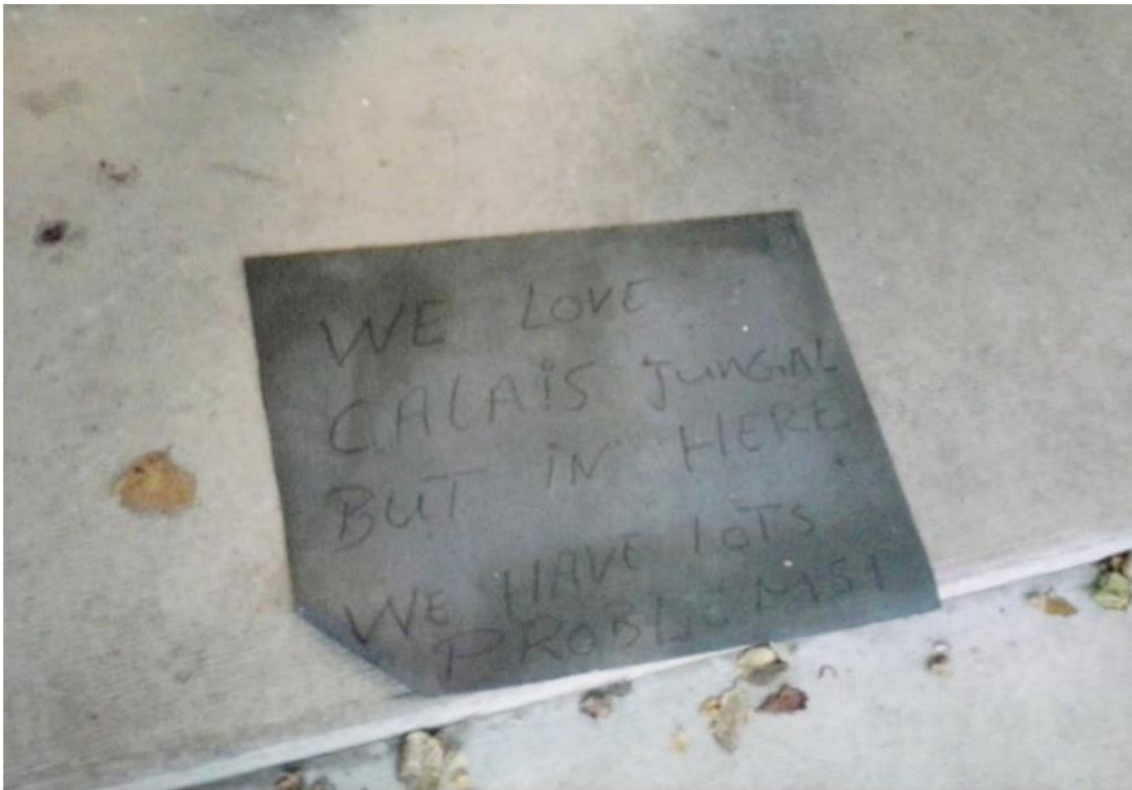 WE LOVE
CALAiS JUNGAL
BUT iN HERE
WE HAVE LOTS
PROBLEMS!